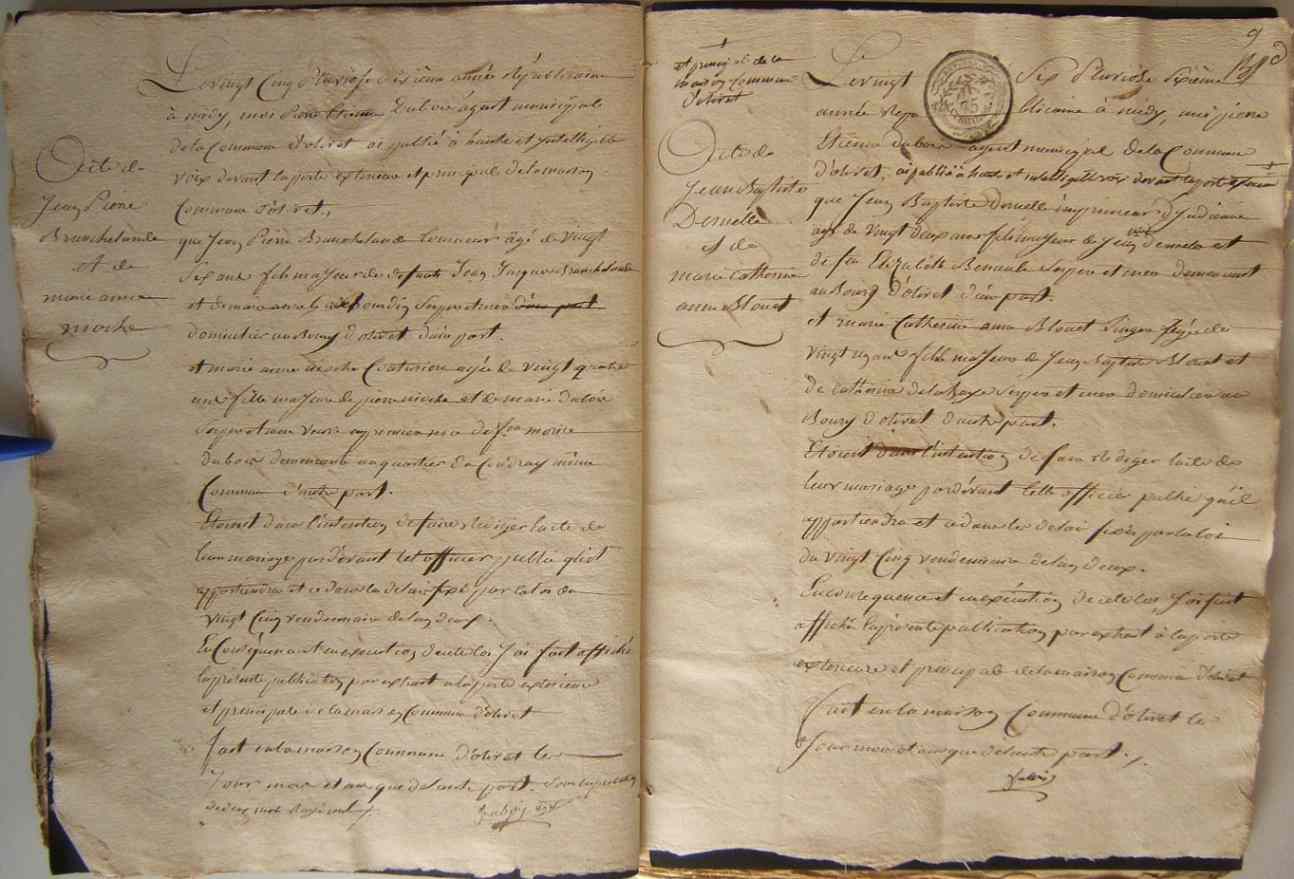 Acte de
Jean Pierre
Branchelande
et de
marie anne
moche
Le vingt Cinq Pluviose sixième année Republicaine
à midy, moi Pierre Etienne Dubois agent municipale
de la Commune d'olivet ai publié à haute et Intelligible
voix devant la porte exterieure et principale de la maison
Commune d'olivet,
que Jean Pierre Branchelande âgé de vingt
six ans fils majeur de deffunts Jean Jacques Branchelande
et de marie anne ses pere et mere d'une part
domicilié au Bourg d'olivet d'une part.
et marie anne moche Couturiere agée de vingt quatre
ans fille majeure de pierre moche et de marie dubois
dubois demeurante au quartier du Coudray même
Commune d'autre part.
Etoient dans l'intention de faire rediger l'acte de
leur mariage pardevant tel officier public qu'il
appartiendra et ce dans les delais fixé par la loi du
vingt Cinq vendemiaire de l'an deux.
En Consequence et en execution de cette loi J'ai fait affiché
la presente publication par extrait a la porte exterieure
et principale de la maison Commune d'olivet
fait en la maison Commune d'olivet les
Jour mois et an que de l'autre part.
de deux mots
Dubois agt
et principale de la
maison Commune
d'olivet
Acte de
Jean Baptiste
Deruelle
et de
marie Catherine
anne Blouet
9
Le vingt Six Pluviose Sixième
année Republicaine à midy, moi pierre
Etienne dubois agent municipal de la Commune
d'olivet, ai publié à haute et intelligible voix devant la porte exterieure
que Jean Baptiste deruelle imprimeur d'Indienne
agé de vingt deux ans fils majeur de Jean deruelle et
de feu Elizabeth ses pere et mere demeurant
au Bourg d'olivet d'une part.
et marie Catherine anne Blouet agée de
vingt un ans fille majeure de Jean Baptiste Blouet et
de Catherine de la Haye ses pere et mere domiciliée au
Bourg d'olivet d'autre part.
Etoient dans l'intention de faire rediger l'acte de
leur mariage pardevant telle officier public qu'il
appartiendra et ce dans les delai fixé par la loi
du vingt Cinq vendemiaire de l'an deux.
En Consequence et en execution de cete loi J'ai fait
affiché la presente publication par extrait à la porte
exterieure et principale de la maison Commune d'olivet
fait en la maison Commune d'olivet les
Jour mois et an que de l'autre part.
Dubois